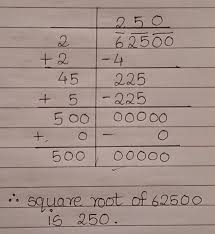 2 5 0
2 62500
+ 2 - 4
45 225
+ 5 - 225
500 00000
+ 0 - 0
500 00000
∴ square root of 62500
is 250.